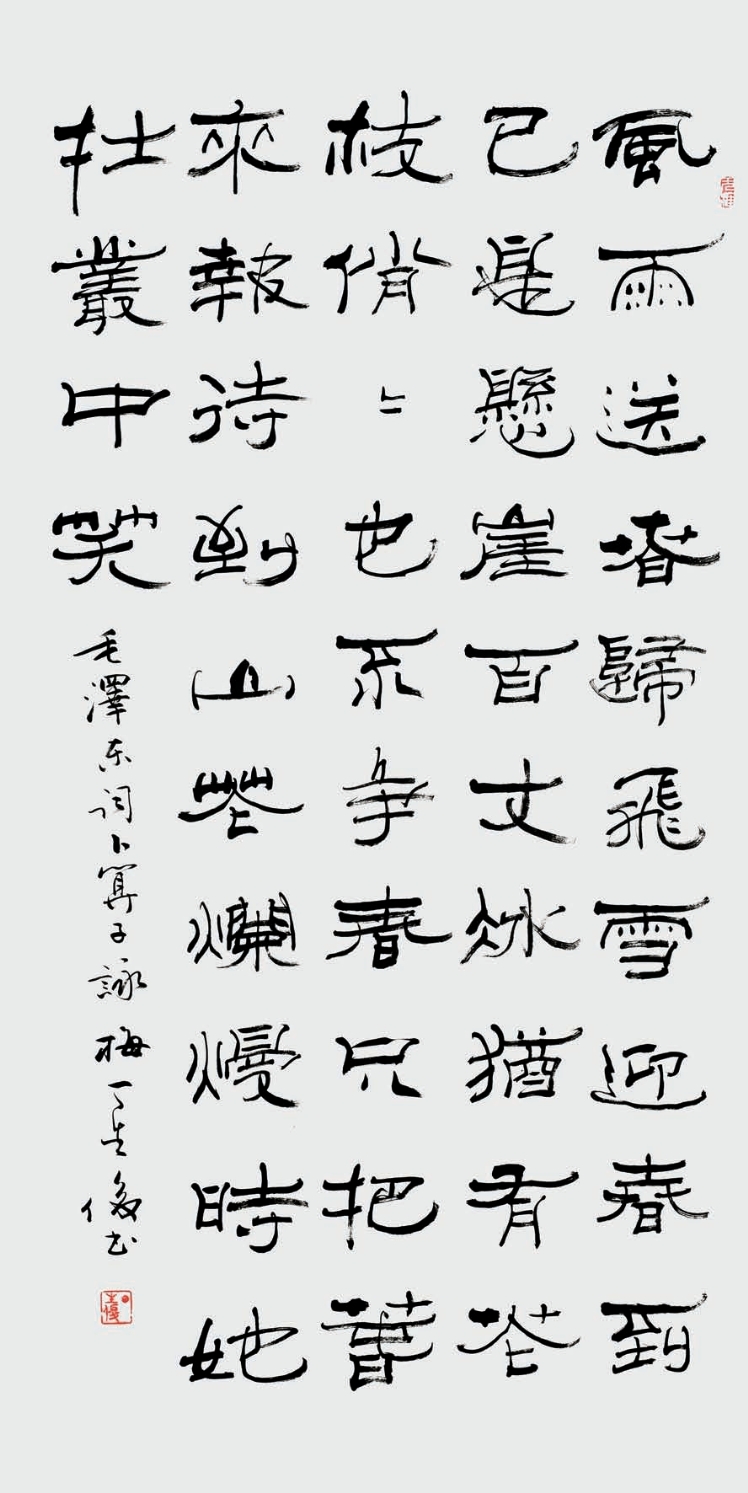 風雨送春歸飛雪迎春到
已是懸崖百丈冰猶有花
枝俏〻也不争春只把春
來報待到山花爛熳時她
扗叢中笑
毛澤东词卜算子詠梅 俊书